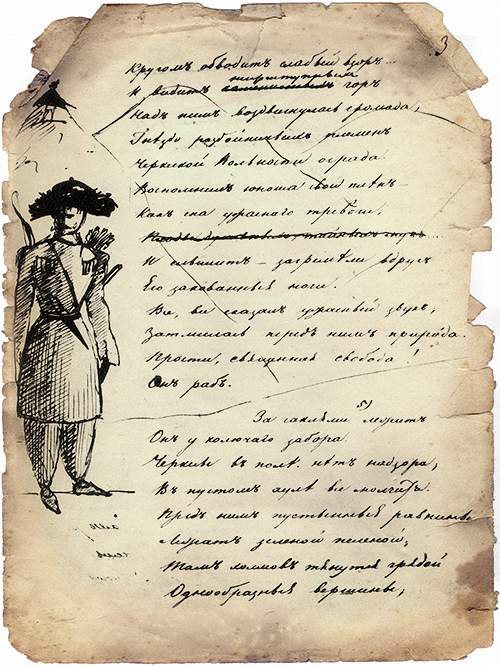 3
Кругомъ обводитъ слабый взоръ...
неприступныхъ
И видитъ горъ
Надъ нимъ воздвигнулась громада,
Гнѣздо разбойничьихъ племенъ
Черкеской Вольности ограда.
Воспомнилъ юноша свой плѣнъ
Какъ сна ужаснаго тревоги,
И слышитъ – загремѣли вдругъ
Его закованныя ноги.
Все, все сказалъ ужасный звукъ;
Затмилась передъ нимъ природа.
Прости, священная свобода!
Онъ рабъ.
За саклями 5) лежитъ
Онъ у колючаго забора.
Черкесы въ полѣ. нѣтъ надзора,
Въ пустомъ аулѣ все молчитъ.
Предъ нимъ пустынныя равнины
Лежатъ зеленой пеленой;
Тамъ холмовъ тянутся грядой
Однообразныя вершины;